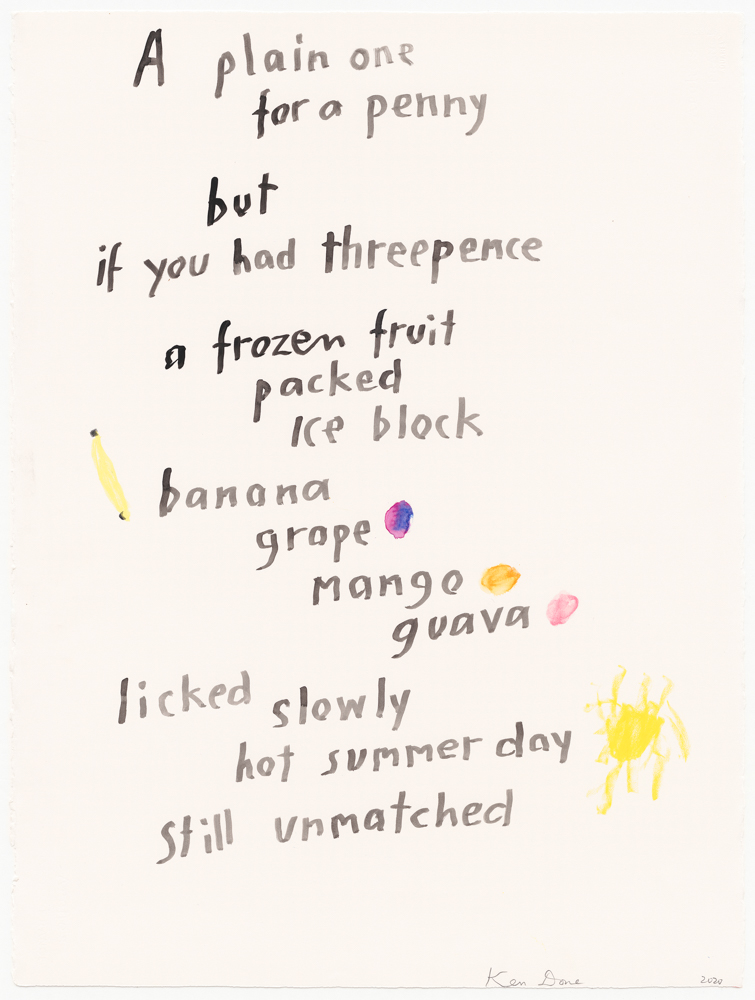 A plain one
for a penny
but
if you had threepence
a frozen fruit
packed
Ice block
banana
grape
mango
guava
licked slowly
hot summer day
Still unmatched
Ken Done 2020